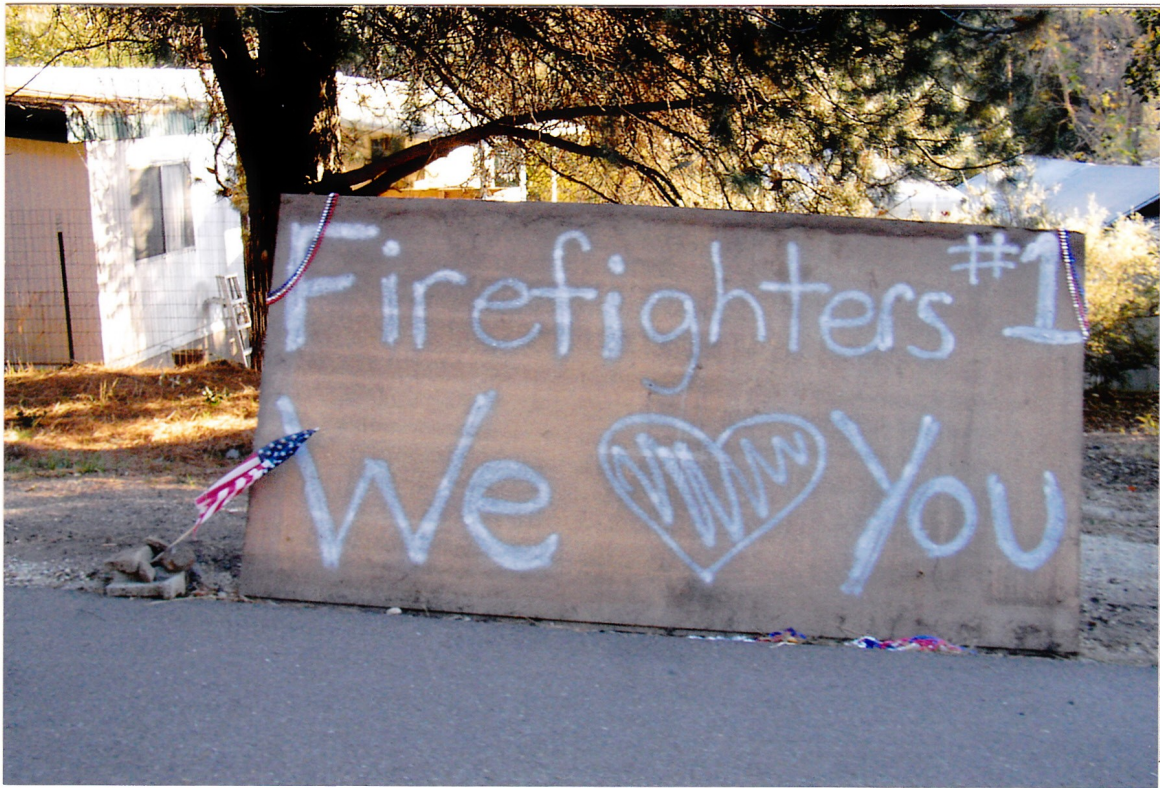 Firefighters #1
We ♥ You